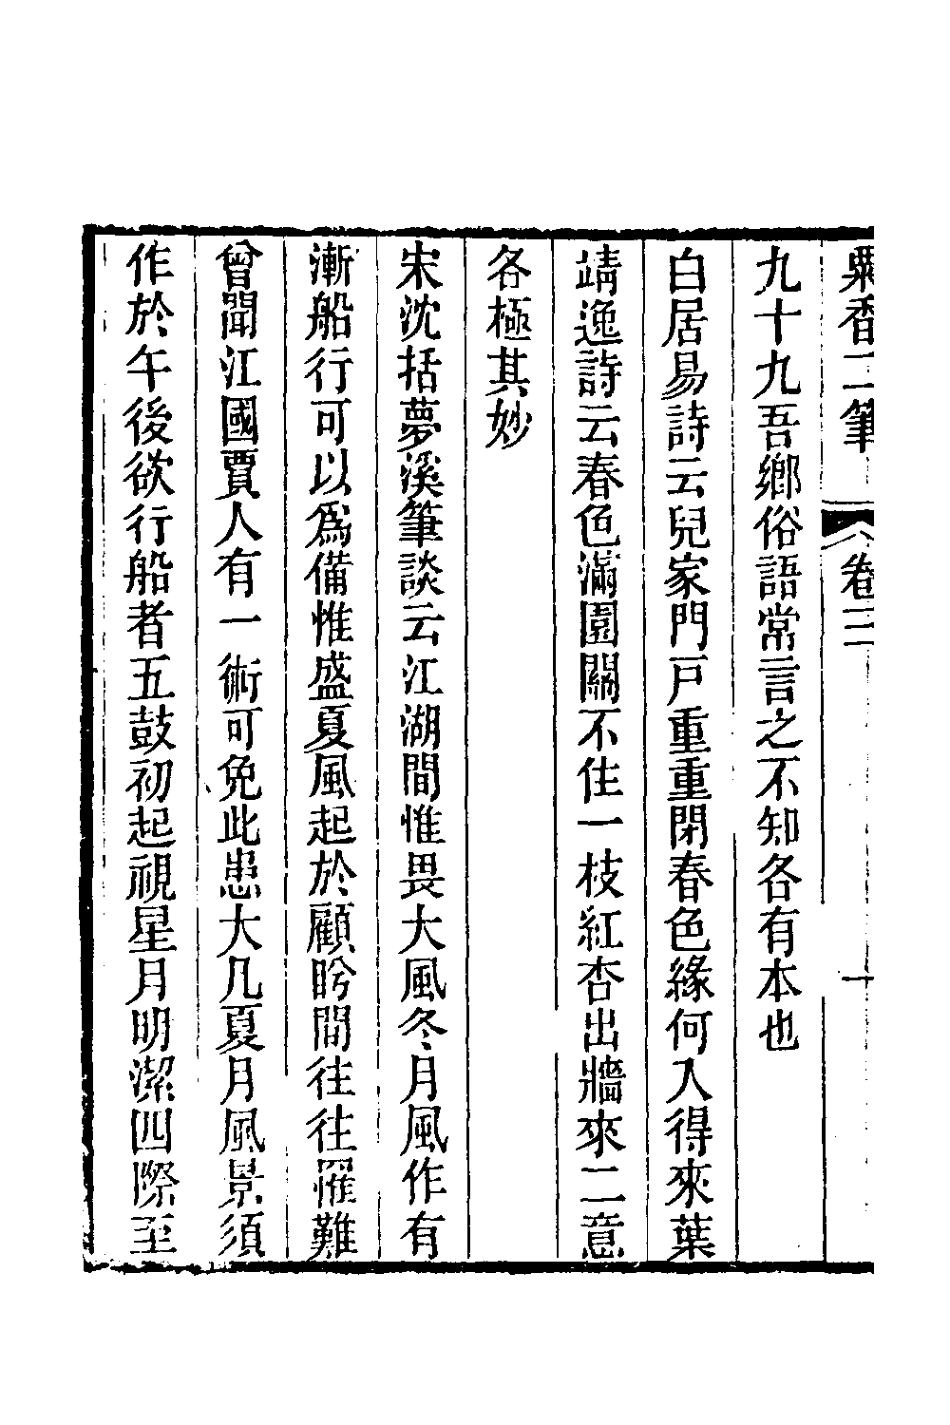 粟香二筆 卷三 十
九十九吾鄉俗語常言之不知各有本也
白居易詩云兒家門戸重重閉春色緣何入得來葉
靖逸詩云春色滿園關不住一枝紅杏出牆來二意
各極其妙
宋沈括夢溪筆談云江湖間惟畏大風冬月風作有
漸船行可以爲備惟盛夏風起於顧盻間往往罹難
曾聞江國賈人有一術可免此患大凡夏月風景須
作於午後欲行船者五鼓初起視星月明潔四際至